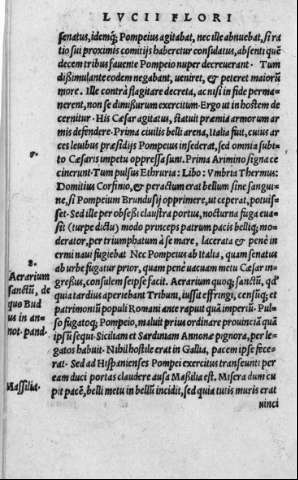 LVCII FLORI
senatus, idemq; Pompeius agitabat, nec ille abnuebat, si ra
tio sui proximis comitijs haberetur consulatus, absenti quē
decem tribus fauente Pompeio nuper decreuerant. Tum
dißimulante eodem negabant, ueniret, & peteret maiorū
more. Ille contrà flagitare decreta, ac nisi in fide perma
nerent, non se dimißurum exercitum. Ergo ut in hostem de
cernitur. His Cæsar agitatus, statuit præmia armorum ar
mis defendere. Prima ciuilis belli arena, Italia fuit, cuius ar
ces leuibus præsidijs Pompeius insederat, sed omnia subi
to Cæsaris impetu oppressa sunt. Prima Arimino signa ce
cinerunt. Tum pulsus Ethruria: Libo: Vmbria Thermus:
Domitius Corfinio, & peractum erat bellum sine sangui-
ne, si Pompeium Brundusij opprimere, ut ceperat, potuis-
set. Sed ille per obseßi claustra portus, nocturna fuga eua-
sit (turpe dictu) modo princeps patrum pacis belliq; mo-
derator, per triumphatum à se mare, lacerata & penè in
ermi naui fugiebat Nec Pompeius ab Italia, quàm senatus
ab urbe fugatur prior, quam penè uacuam metu Cæsar in-
greßus, consulem seipse facit. Aerarium quoq; sanctū, qd'
quia tardius aperiebant Tribuni, iußit effringi, censūq; et
patrimoniū populi Romani ante rapuit quà imperiū. Pul-
so fugatoq; Pompeio, maluit prius ordinare prouinciā quà
ipsū sequi. Siciliam et Sardiniam Annonæ pignora, per le-
gatos habuit. Nihil hostile erat in Gallia, pacem ipse fece-
rat. Sed ad Hispanienses Pompei exercitus transeunti per
eam duci portas claudere ausa Maßilia est. Misera dum cu
pit pacē, belli metu in bellū incidit, sed quia tutis muris erat
uinci
Aerarium
sanctū, de
quo Bud
us in an-
not. pand.
Maßilia.